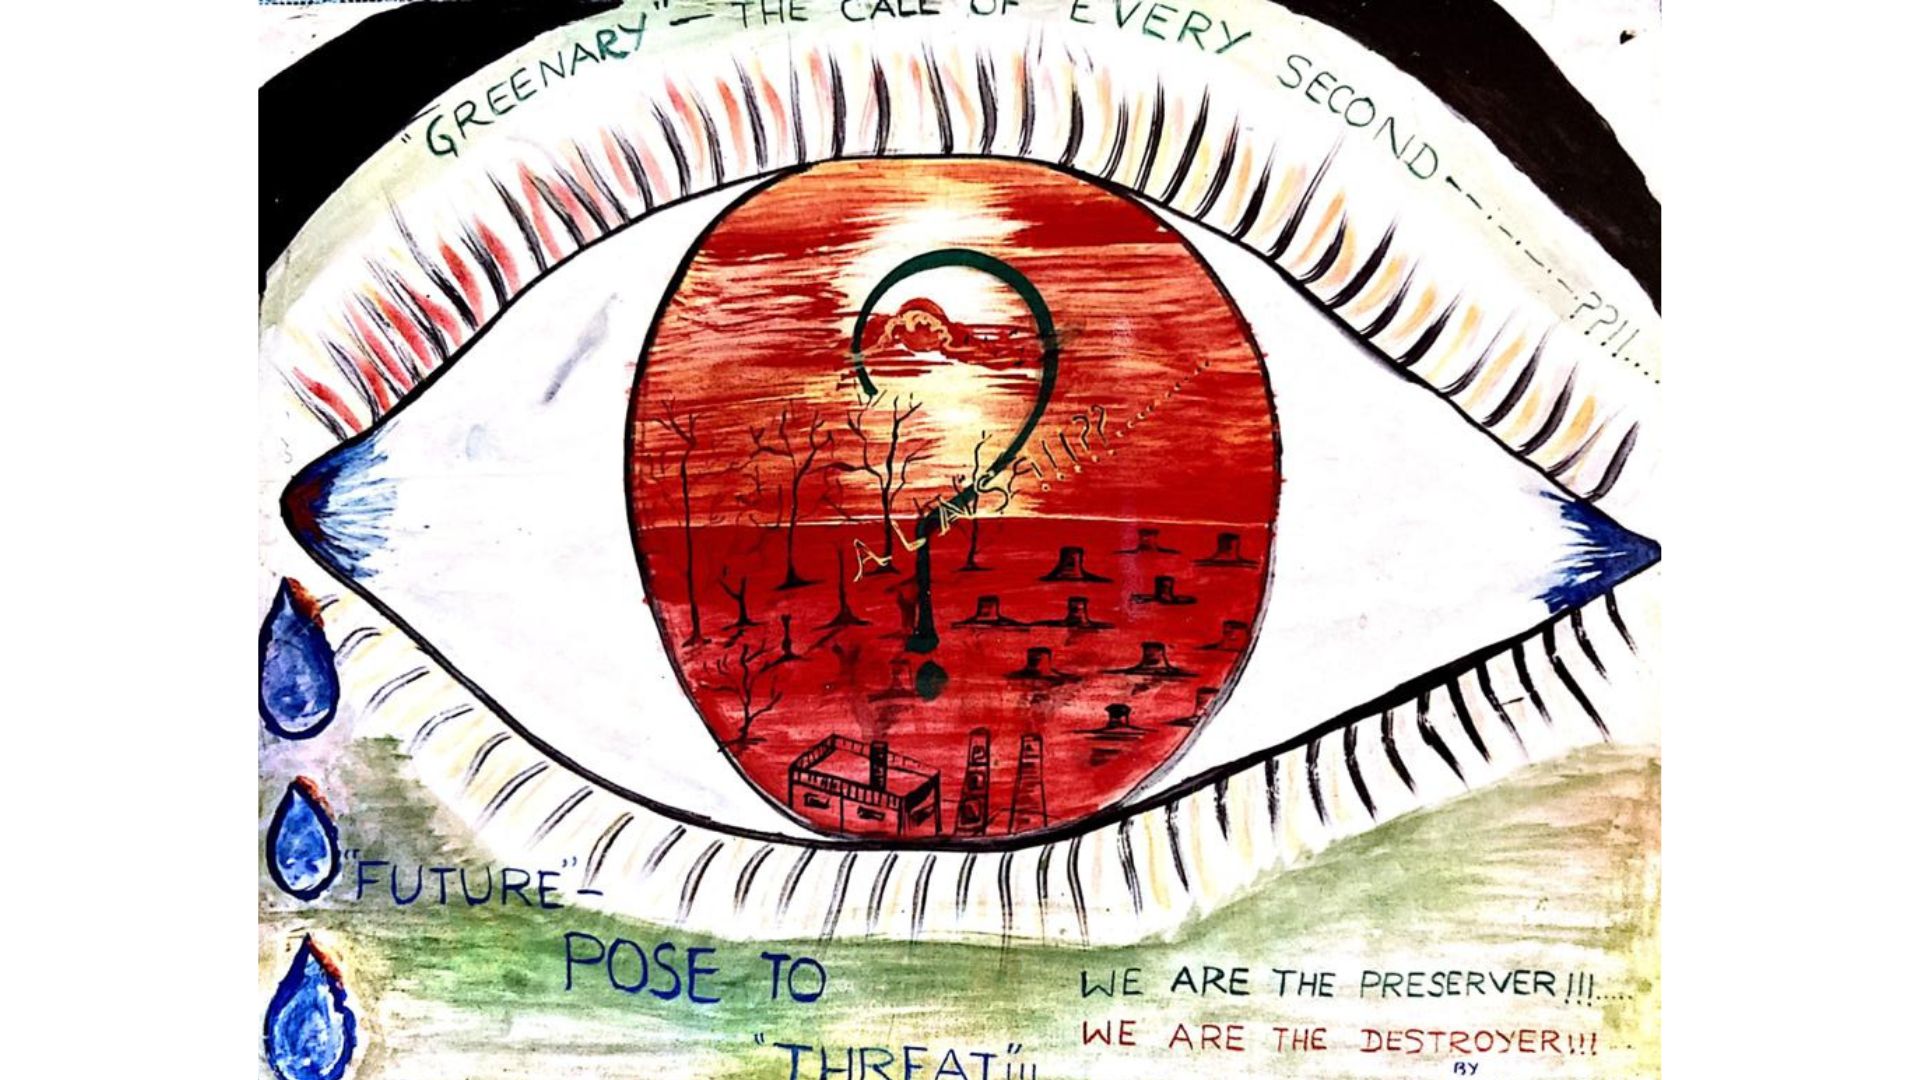 "GREENARY" – THE CALL OF EVERY SECOND --.-.-.-.??!!....
ALAS!!!??........
"FUTURE" –
POSE TO
"THREAT"!!!
WE ARE THE PRESERVER!!!.....
WE ARE THE DESTROYER!!!...
BY